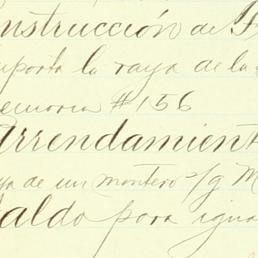 nstrucción de F
mporta la raya de la
emoria #156
Arrendamient
ya de un montero s/g M
aldo para igua